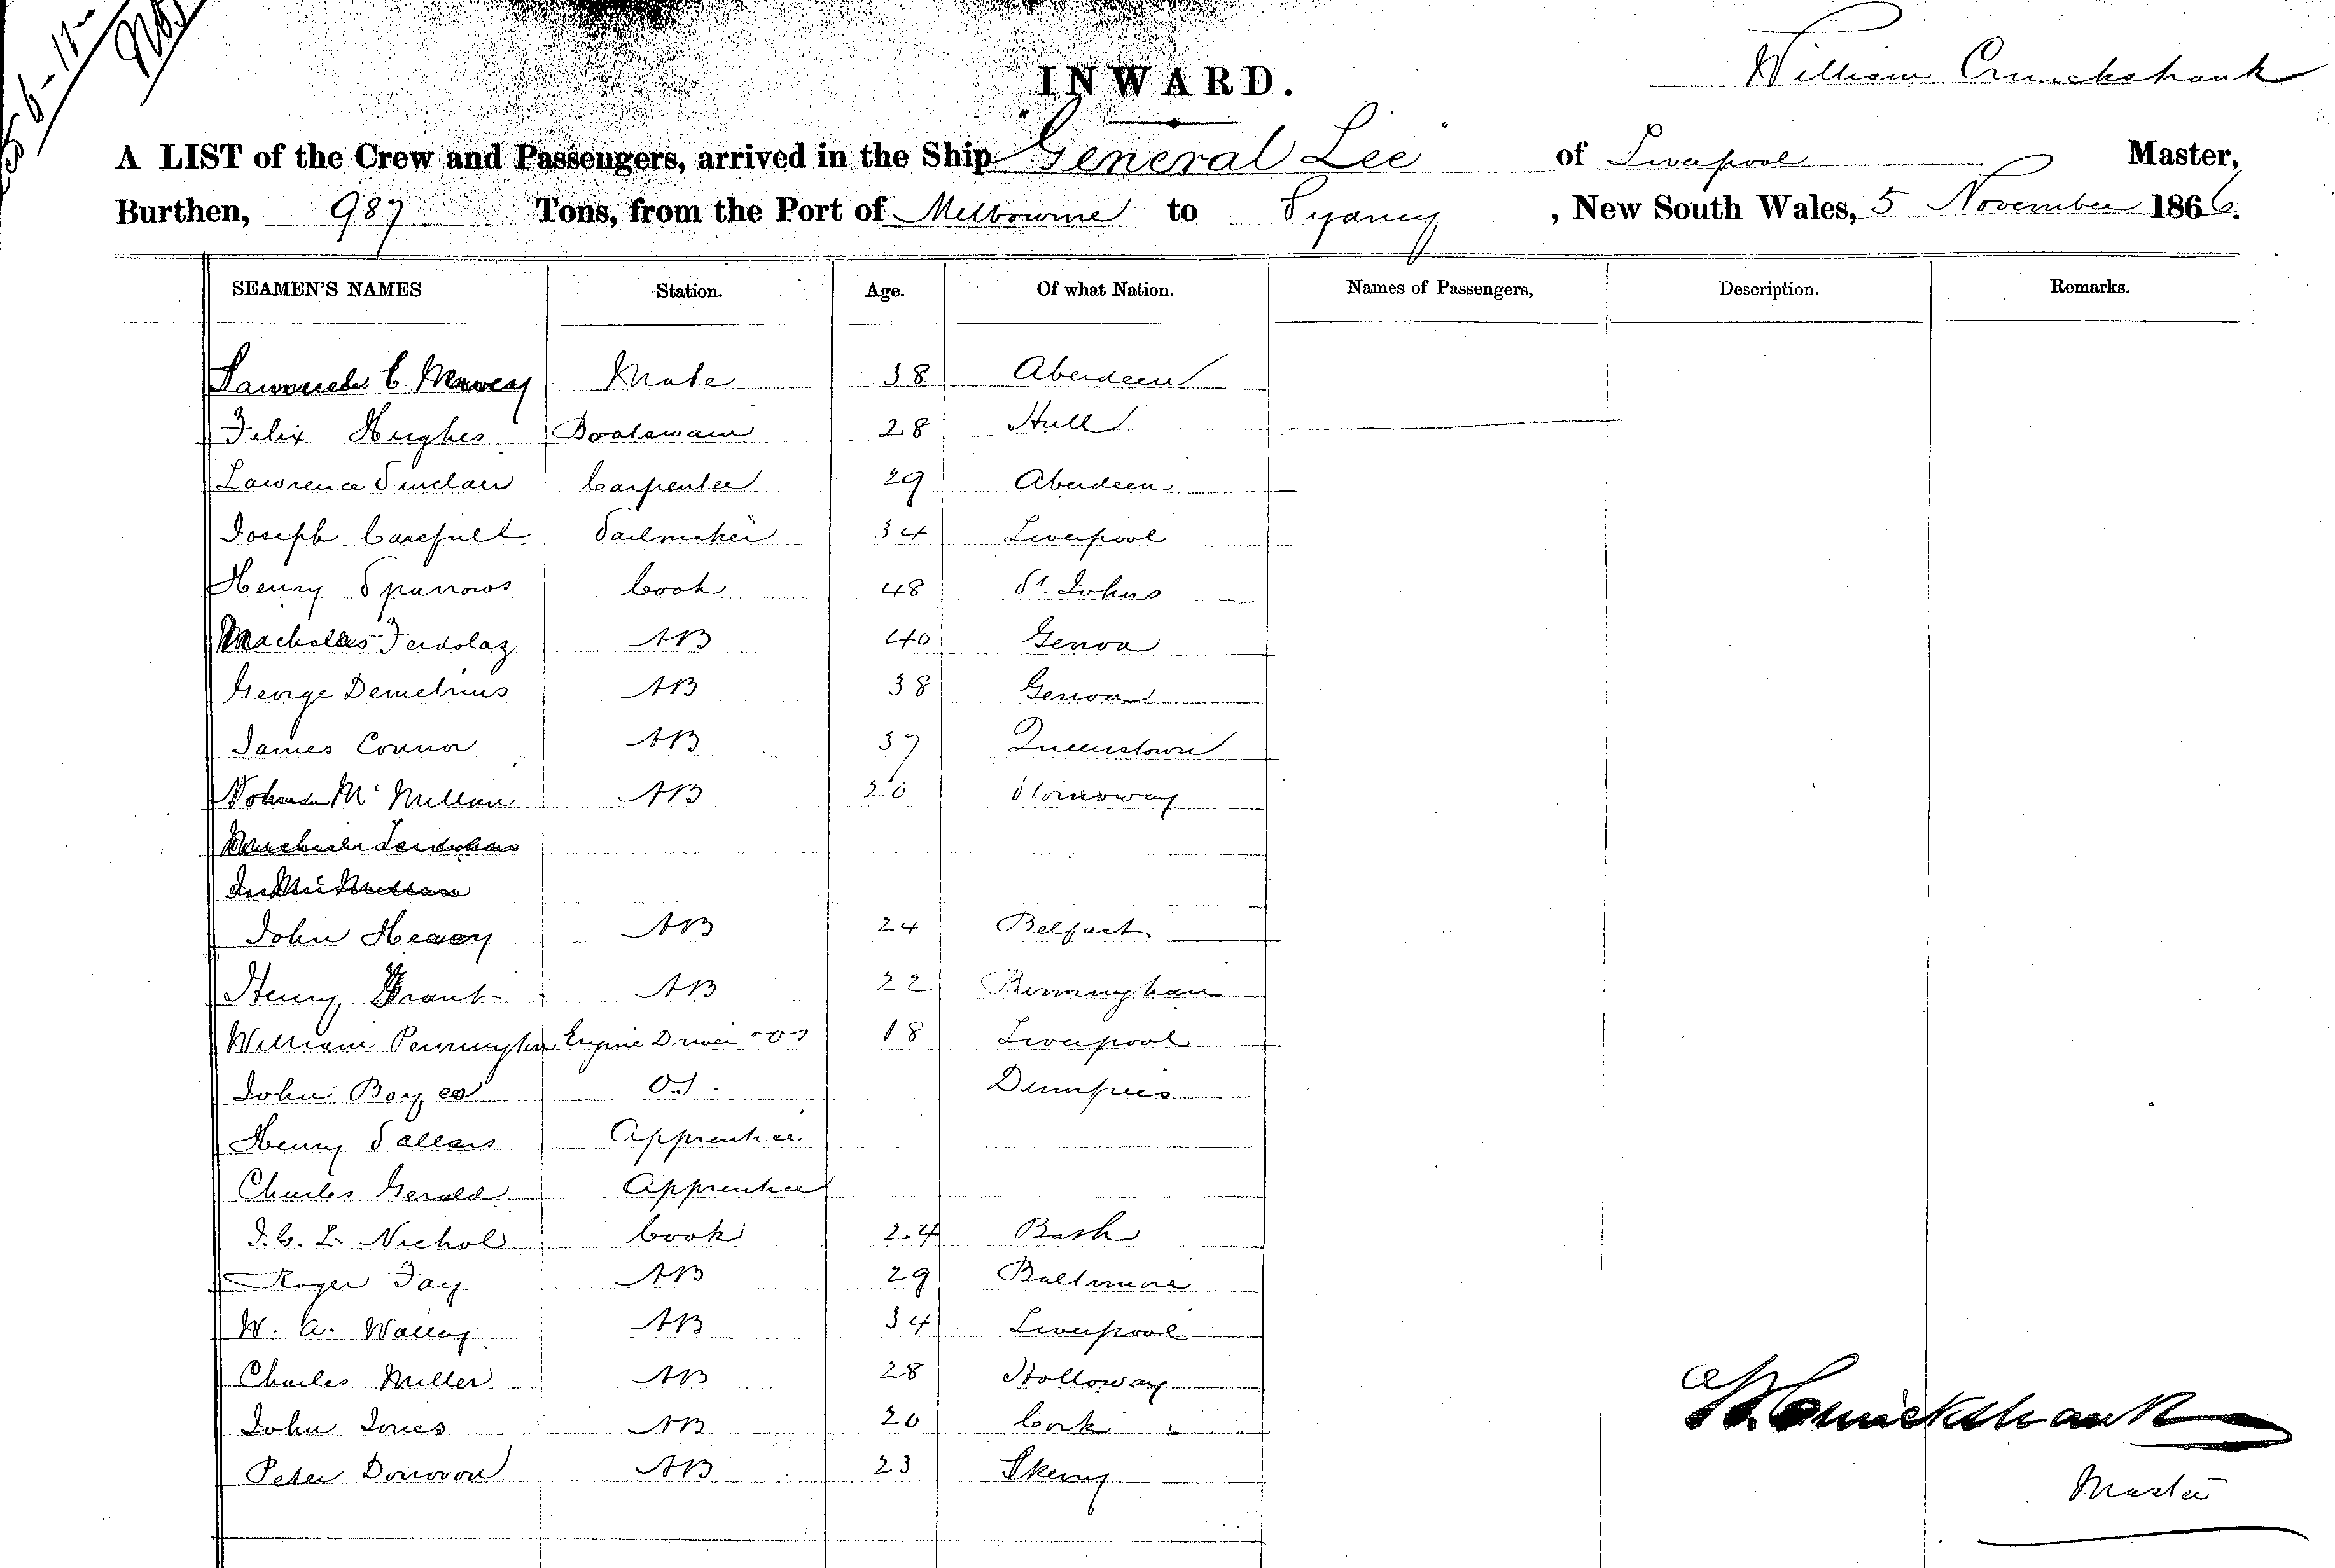 William Cruickshank
INWARD.
A LIST of the Crew and Passengers, arrived in the Ship "General Lee" of Liverpool Master,
Burthen, 987 Tons, from the Port of Melbourne to Sydney, New South Wales, 5 November 1866.
SEAMEN'S NAMES Station. Age. Of what Nation. Names of Passengers, Description. Remarks.
Mate 38 Aberdeen
Felix Hughes Boatswain 28 Hull
Lawrence Sinclair Carpenter 29 Aberdeen
Joseph Carefull Sailmaker 34 Liverpool
Henry Sparrows Cook 48 St. Johns
AB 40 Genoa
George Demetrius AB 38 Genoa
James Connor AB 37 Queenstown
McMillan AB 20 Stornoway
John AB 24 Belfast
Henry Grant AB 22 Birmingham
William Pennington Engine Driver OS 18 Liverpool
John Boyes OS. Dumfries
Henry Apprentice
Charles Gerald Apprentice
Nichol Cook 24 Bath
Roger Fay AB 29 Baltimore
W. A. AB 34 Liverpool
Charles Miller AB 28 Holloway
John Jones AB 20 Cork
Peter Donovon AB 23
Cruickshank
Master